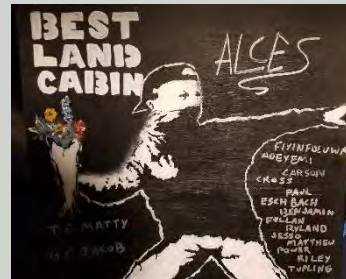 BEST
LAND
CABIN
ALCES
FIYINFOLUWA
ADEYEMI
CARSON
CROSS
PAUL
ESCHBACH
BENJAMIN
FOLLAN
RYLAND
JESSO
MATTHEW
POWER
RILEY
TUPLING
T.C. MATTY
JACOB